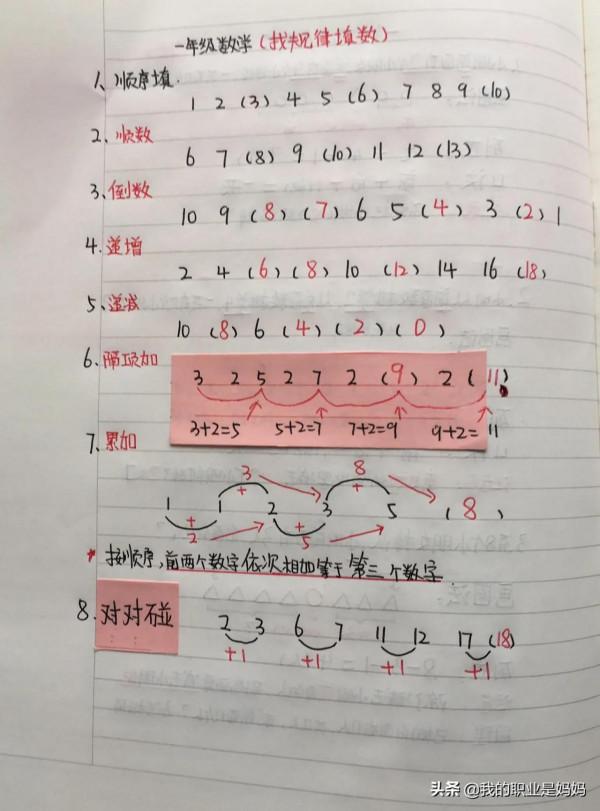 一年级数学(找规律填数)
1、顺序填.
1 2 (3) 4 5 (6) 7 8 9 (10)
2、顺数
6 7 (8) 9 (10) 11 12 (13)
3、倒数
10 9 (8) (7) 6 5 (4) 3 (2) 1
4、递增
2 4 (6) (8) 10 (12) 14 16 (18)
5、递减
10 (8) 6 (4) (2) (0)
6、隔项加
3 2 5 2 7 2 (9) 2 (11)
3+2=5 5+2=7 7+2=9 9+2=11
7、累加
3 8
+ +
1 1 2 3 5 (8)
+ +
2 5
* 按顺序,前两个数字依次相加等于第三个数字.
8、对对碰
2 3 6 7 11 12 17 (18)
+1 +1 +1 +1
头条 @我的职业是妈妈